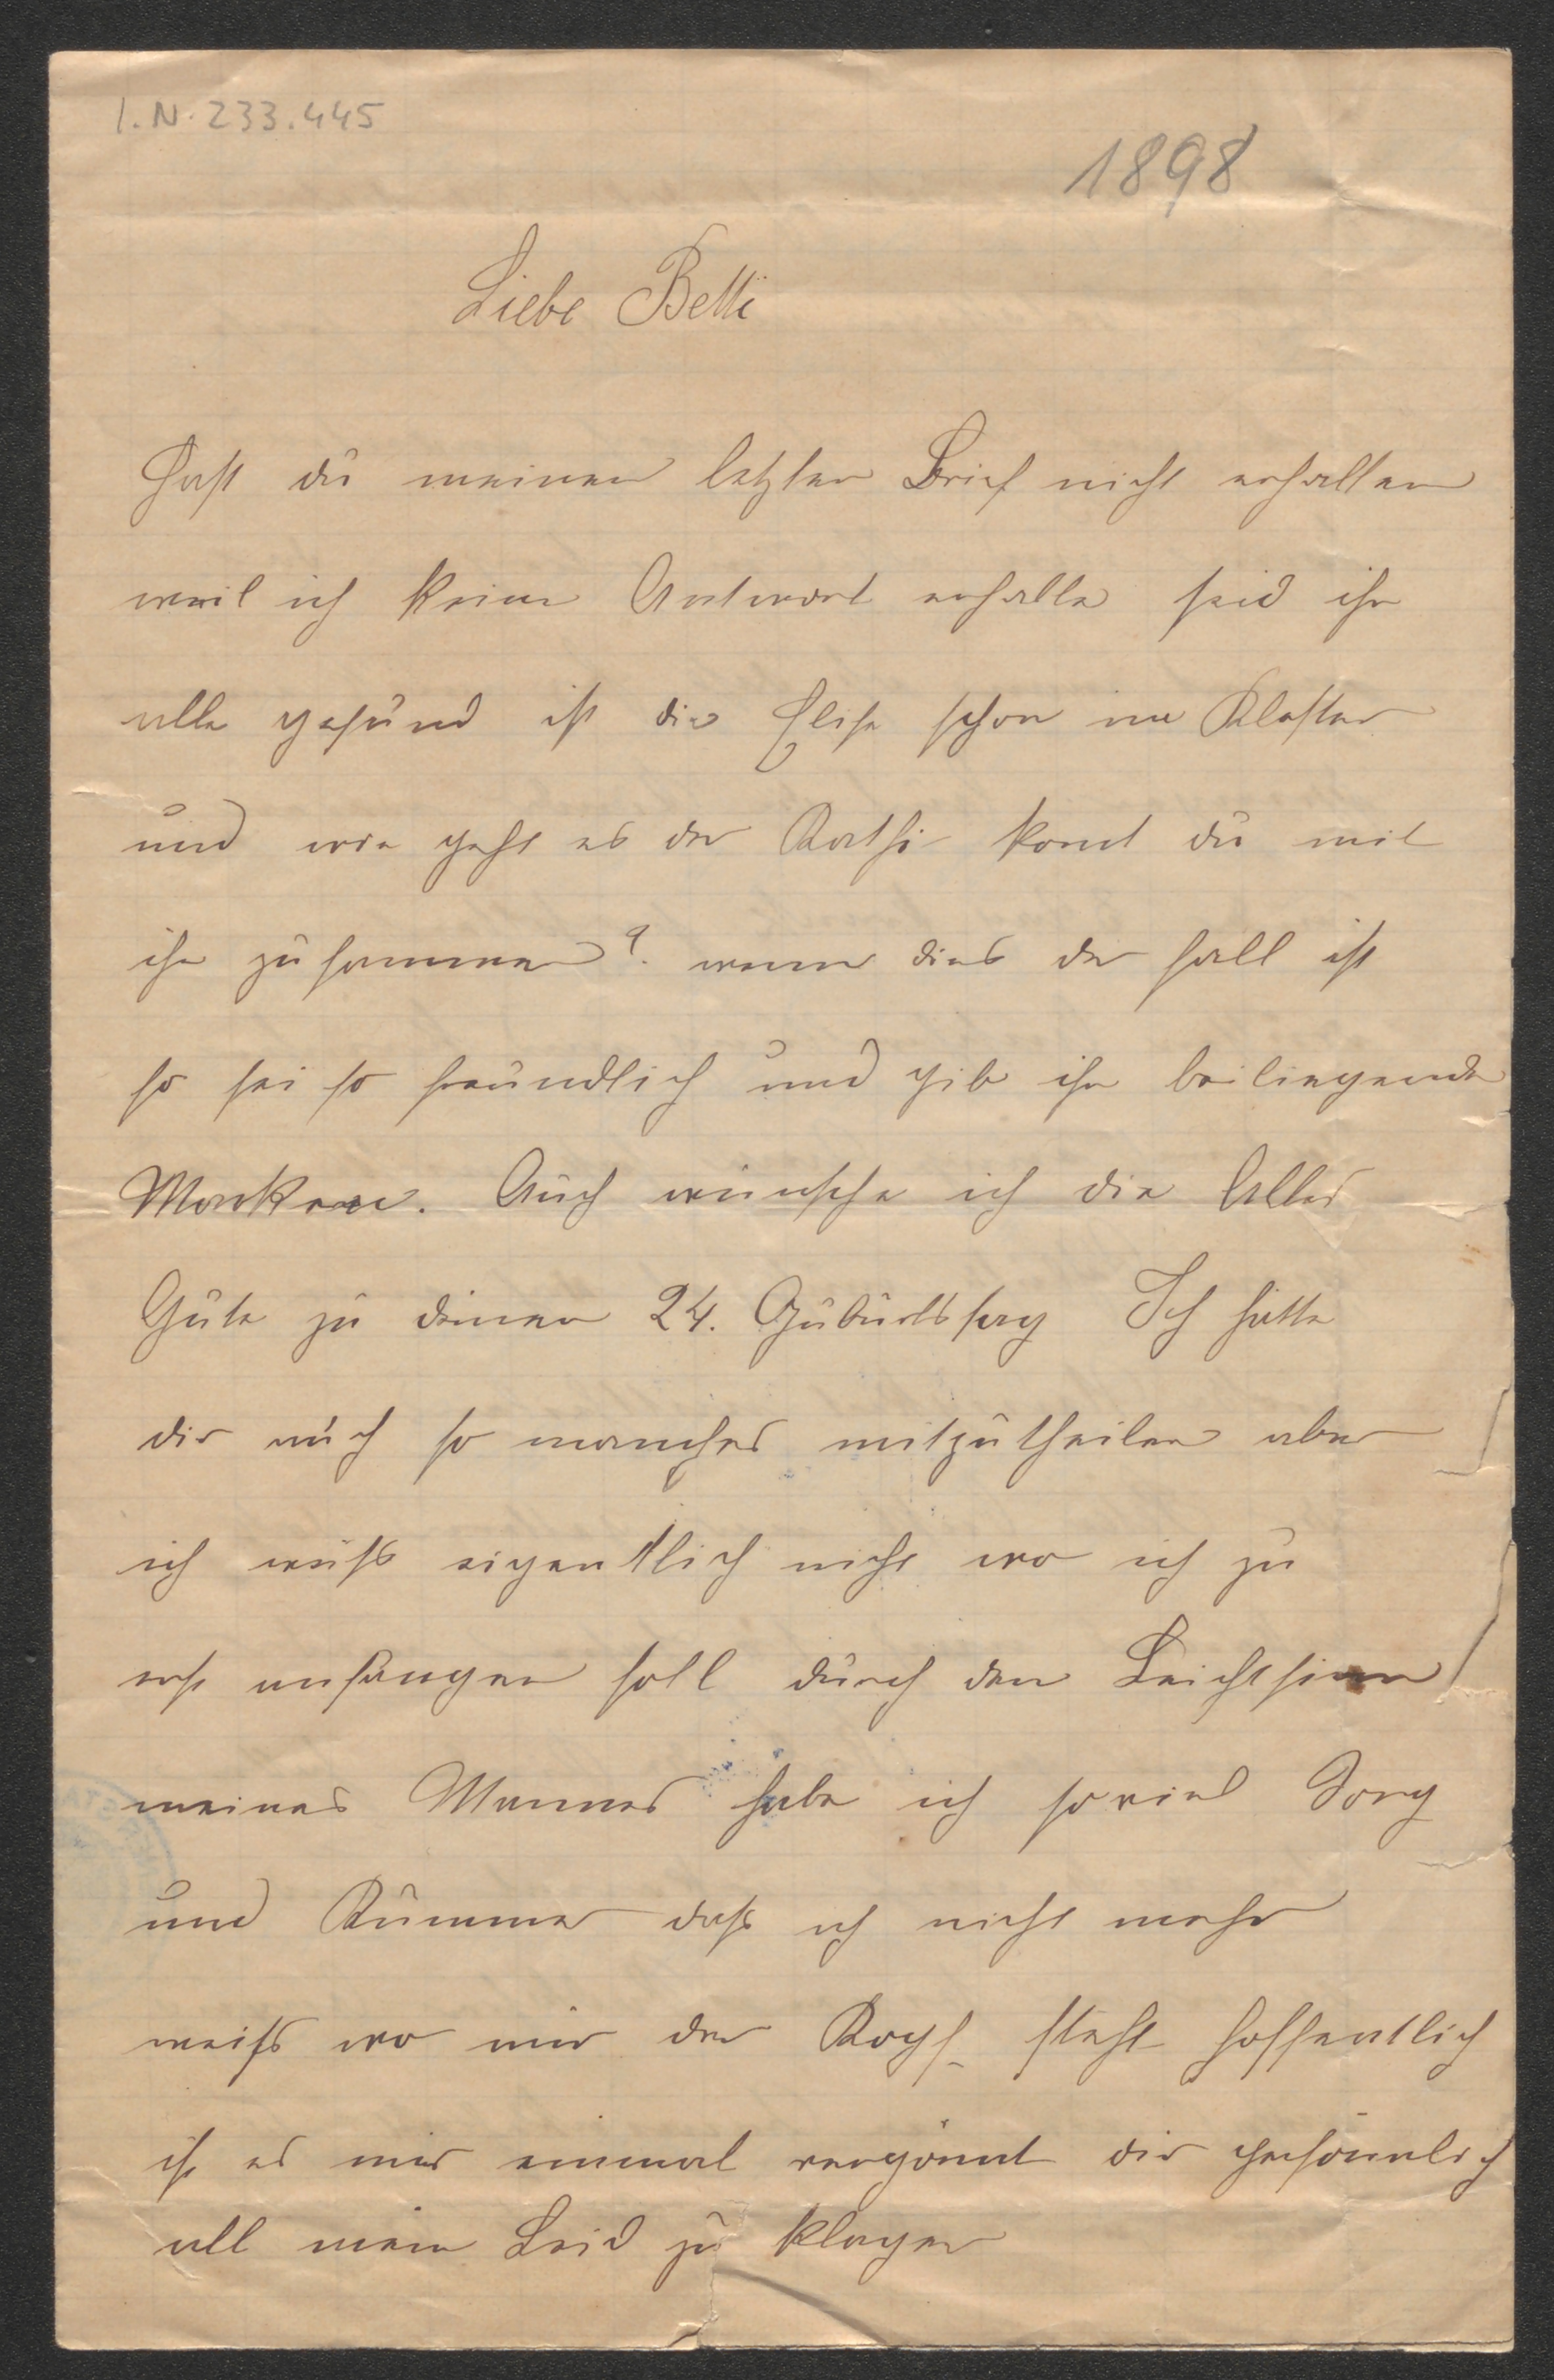 I.N. 233.445
1898
Liebe Betti
Hast du meinen letzten Brief nicht erhalten
weil ich keine Antwort erhalte seid ihr
alle gesund ist die Elise schon im Kloster
und wie geht es der Kathi komt du mit
ihr zusammen? wenn dies der fall ist
so sei so freundlich und gib ihr beiliegende
Marken. Auch wünsche ich dir Alles
Gute zu deinen 24. Guburtstag Ich hätte
dir auch so manches mitzutheilen aber
ich weiß eigentlich nicht wo ich zu
erst anfangen soll durch den Leichtsinn
meines Mannes habe ich soviel Sorg
und Kummer daß ich nicht mehr
weiß wo mir der Kopf steht hoffentlich
ist es mir einmal vergönnt dir persönnlich
all mein Leid zu klagen